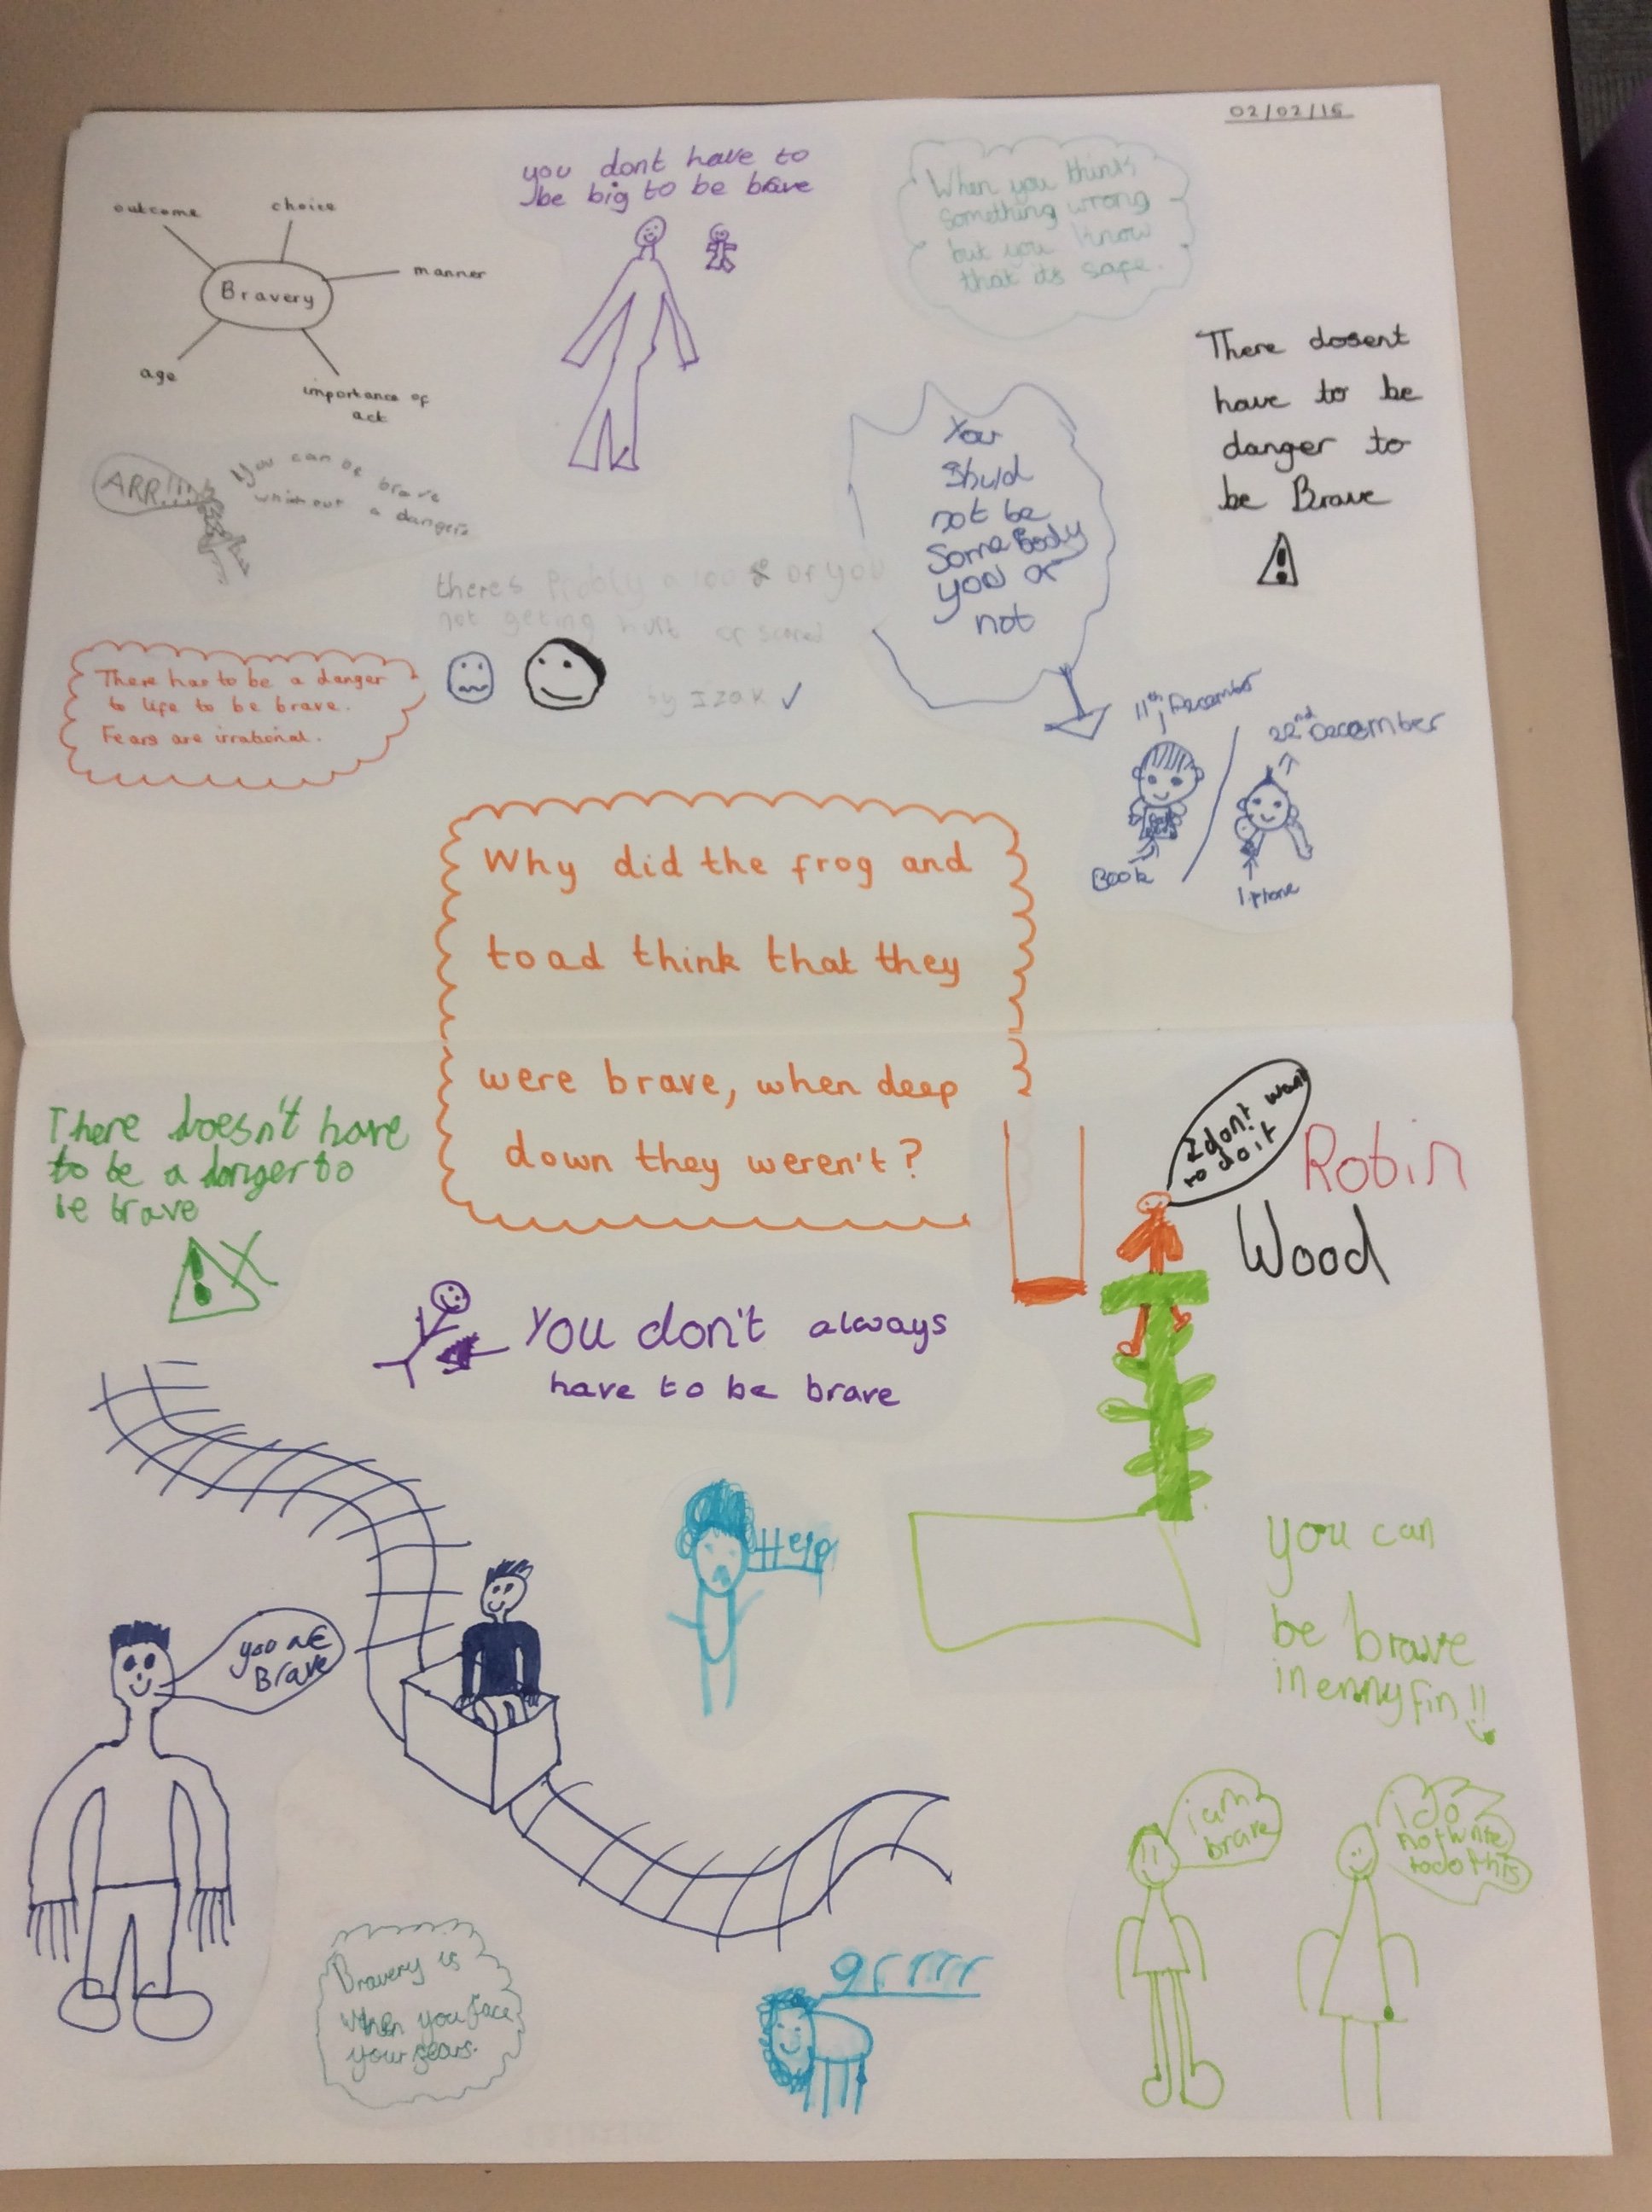 02/02/16
outcome
choice
manner
Bravery
age
importance of
act
you dont have to
be big to be brave
When you think
something wrong
but you know
that its safe.
There dosent
have to be
danger to
be Brave
ARR!!!
You can be brave
without a dangers
You
Shuld
not be
SomeBody
you ar
not
theres Probly a 100% of you
not geting hurt or scared
by IZaK
There has to be a danger
to life to be brave.
Fears are irrational.
11th December
22nd December
Book
Iphone
Why did the frog and
toad think that they
were brave, when deep
down they weren't?
There doesn't have
to be a danger to
be brave
I don't want
to do it
Robin
Wood
You don't always
have to be brave
Help
you can
be brave
in enny fin!!
you are
Brave
i am
brave
i do
not
to do this
Bravery is
When you face
your fears.
grrrr